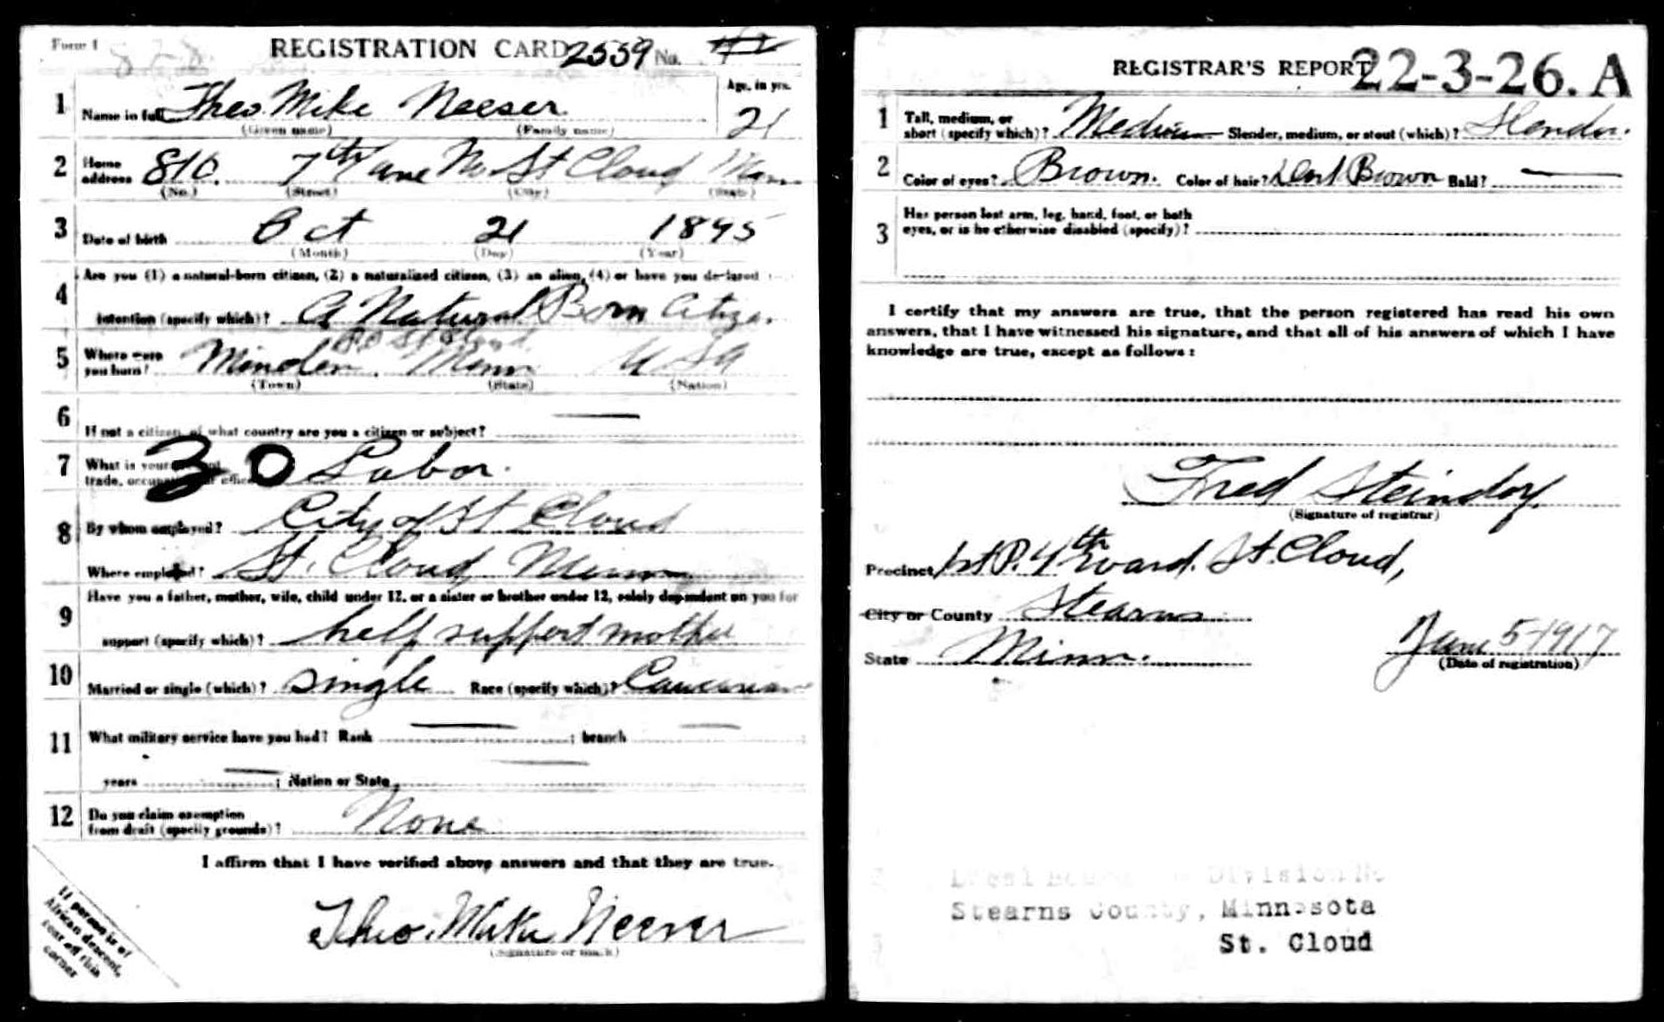 Form 1
REGISTRATION CARD 2559 No.
1 Name in full Theo. Mike Neeser Age, in yrs. 21
(Given name) (Family name)
2 Home address 810. 7th ave No St Cloud Minn
(No.) (Street) (City) (State)
3 Date of birth Oct 21 1895
(Month) (Day) (Year)
4 Are you (1) a natural-born citizen, (2) a naturalized citizen, (3) an alien, (4) or have you declared
intention (specify which)? A Natural Born Citizen.
5 Where were you born? Minden. Minn USA
(Town) (State) (Nation)
6 If not a citizen, of what country are you a citizen or subject?
7 What is your
trade, 30 Labor.
8 By whom employed? City of St Cloud
Where employed? St. Cloud Minn
9 Have you a father, mother, wife, child under 12, or a sister or brother under 12, solely dependent on you for
support (specify which)? help support mother
10 Married or single (which)? single Race (specify which)? Caucasian
11 What military service have you had? Rank ; branch
years ; Nation or State
12 Do you claim exemption
from draft (specify grounds)? None
I affirm that I have verified above answers and that they are true.
Theo. Mike Neeser
(Signature or mark)
If person is of
African descent,
tear off this
corner
REGISTRAR'S REPORT 22-3-26. A
1 Tall, medium, or
short (specify which)? Medium Slender, medium, or stout (which)? Slender.
2 Color of eyes? Brown. Color of hair? Dark Brown Bald?
3 Has person lost arm, leg, hand, foot, or both
eyes, or is he otherwise disabled (specify)?
I certify that my answers are true, that the person registered has read his own
answers, that I have witnessed his signature, and that all of his answers of which I have
knowledge are true, except as follows:
Fred Steindorf.
(Signature of registrar)
Precinct 1st P. 4th ward. St. Cloud,
City or County Stearns
State Minn. June 5-1917
(Date of registration)
Local Board Division No
Stearns County, Minnesota
St. Cloud